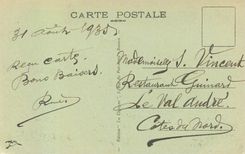 CARTE POSTALE
31 Août 1935
Reçu carte
Bons Baisers.
Mademoiselle S. Vincent
Restaurant Guinard
Le Val André
Côtes du Nord